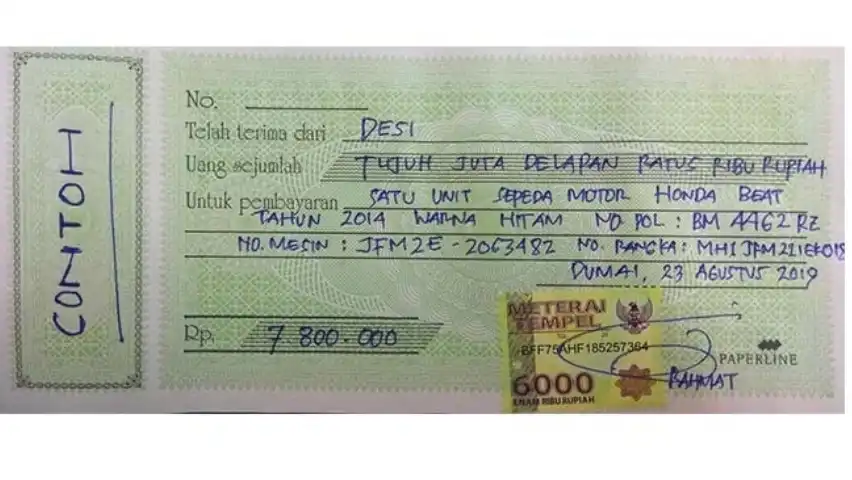 CONTOH
No.
Telah terima dari DESI
Uang sejumlah TUJUH JUTA DELAPAN RATUS RIBU RUPIAH
Untuk pembayaran SATU UNIT SEPEDA MOTOR HONDA BEAT
TAHUN 2014 WARNA HITAM NO POL : BM 4462 RZ
NO. MESIN : JFM2E - 2063482 NO. RANGKA :
DUMAI, 23 AGUSTUS 2019
Rp. 7.800.000
METERAI
TEMPEL
BFF75AHF185257364
6000
ENAM RIBU RUPIAH
PAPERLINE
RAHMAT